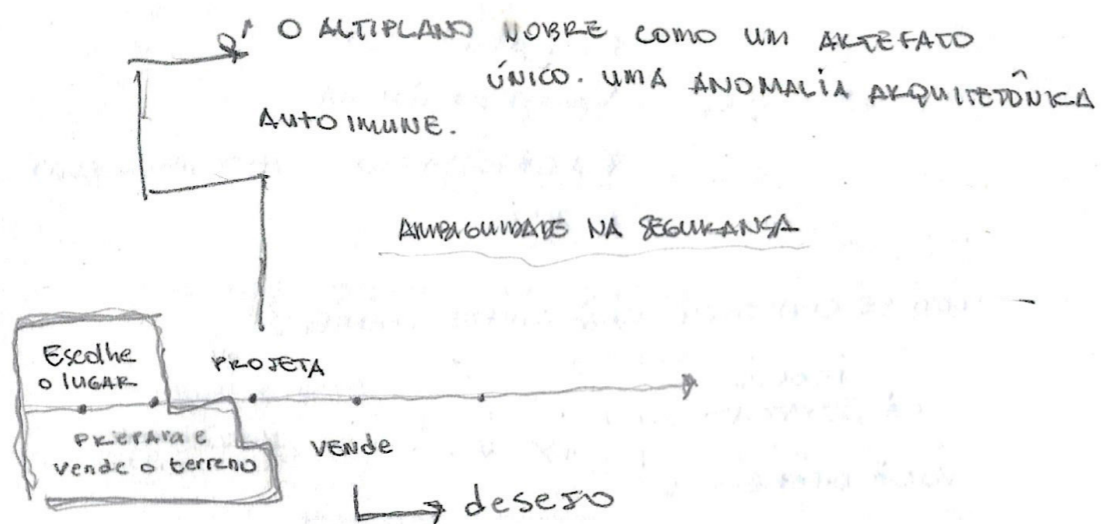 O ALTIPLANO NOBRE COMO UM ARTEFATO
ÚNICO. UMA ANOMALIA ARQUITETÔNICA
AUTOIMUNE.
AMBIGUIDADE NA SEGURANSA
Escolhe
o LUGAR
PROJETA
PREPARA e
Vende o terreno
VENDE
desejo